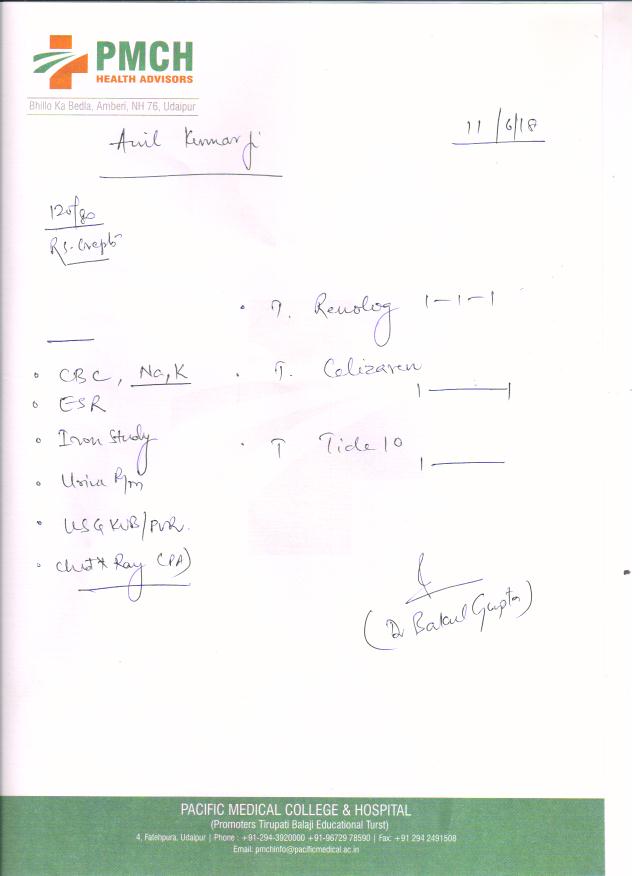 PMCH
HEALTH ADVISORS
Bhillo Ka Bedla, Amberi, NH 76, Udaipur
11/6/18
Anil Kumar ji
120/80
RS-Crepts
• T. Renolog 1-1-1
• CBC, Na, K
• T. Celizaren 1——1
• ESR
• Iron Study
• T Tide 10 1——
• Urine R/m
• USG KUB/PVR.
• Chest X Ray (PA)
(Dr Bakul Gupta)
PACIFIC MEDICAL COLLEGE & HOSPITAL
(Promoters Tirupati Balaji Educational Turst)
4, Fatehpura, Udaipur | Phone : +91-294-3920000 +91-96729 78590 | Fax: +91 294 2491508
Email: pmchinfo@pacificmedical.ac.in